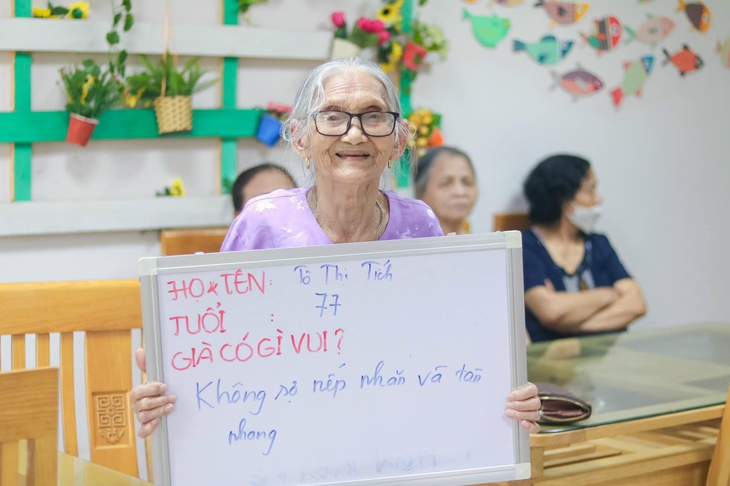 HỌ & TÊN: Tô Thị Tích
TUỔI : 77
GIÀ CÓ GÌ VUI?
Không sợ nếp nhăn và tàn
nhang